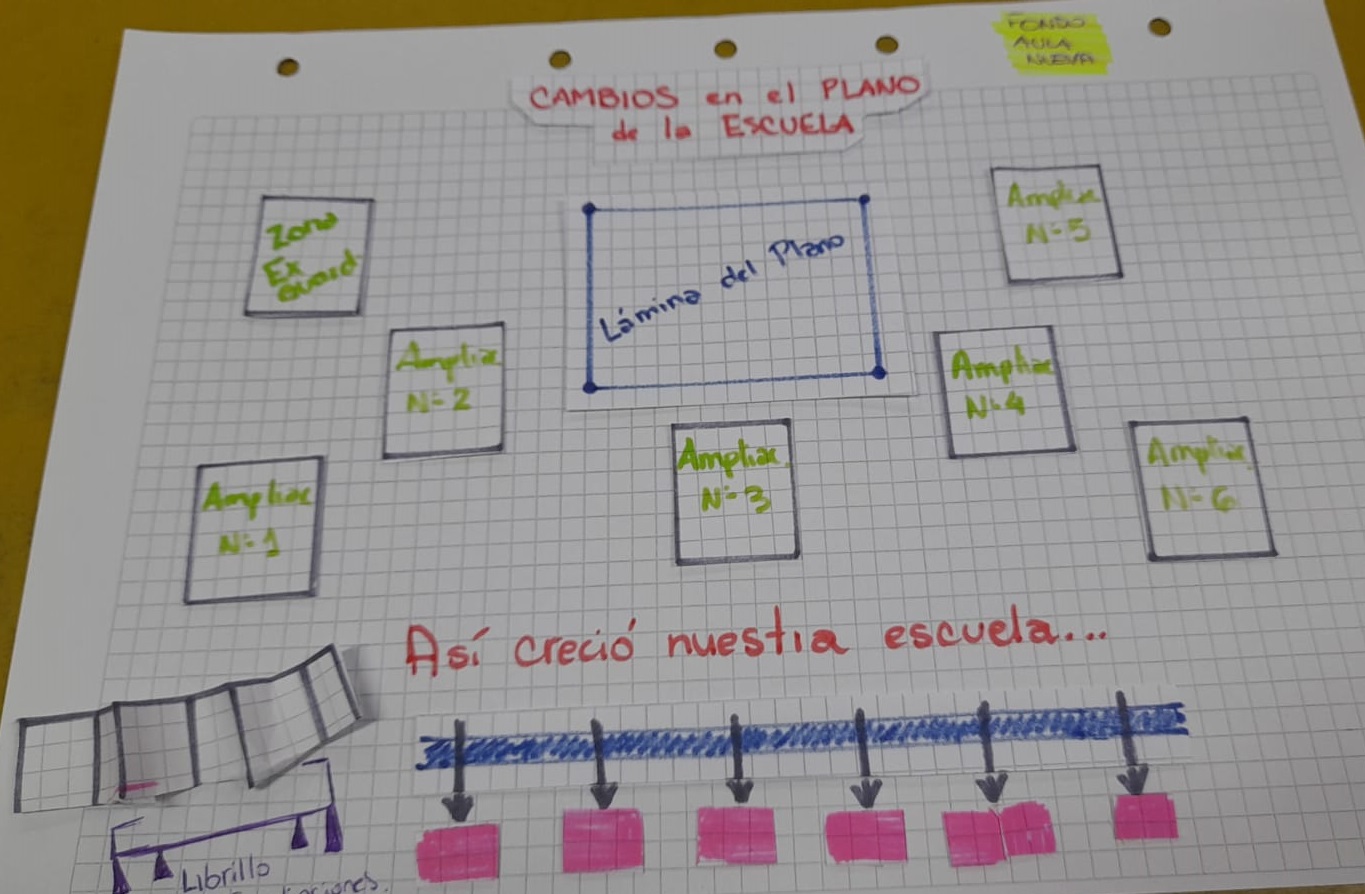 FONDO
AULA
NUEVA
CAMBIOS en el PLANO
de la ESCUELA
Zona
Ex
Guard
Lámina del Plano
Ampliac
N=5
Ampliac
N=2
Ampliac
N=4
Ampliac
N=3
Ampliac
N=6
Ampliac
N=1
Así creció nuestra escuela...
Librillo